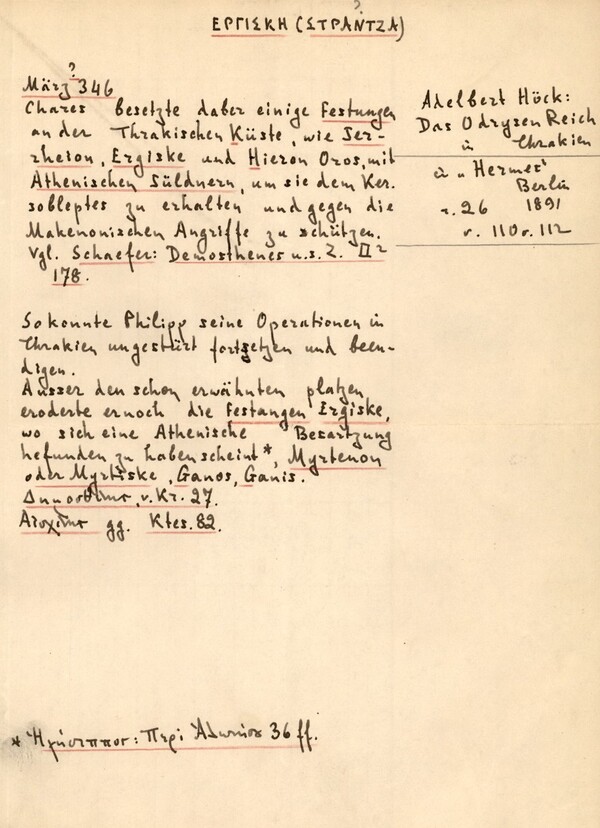 ?
ΕΡΓΙΣΚΗ (ΣΤΡΑΝΤΖΑ)
?
März 346
Chares besetzte daher einige Festungen
an der Thrakischen Küste, wie Ser-
rheion, Ergiske und Hieron Oros, mit
Athenischen Süldnern, um sie dem Ker.
sobleptes zu erhalten und gegen die
Makenonischen Angriffe zu schützen.
Vgl. Schaefer: Demosthenes u.s. Z. II²
178.
So konnte Philipp seine Operationen in
Thrakien ungestürt fortsetzen und been-
digen.
Ausser den schon erwähnten platzen
eroderte er noch die Festangen Ergiske,
wo sich eine Athenische Besartzung
befunden zu haben scheint*, Myrtenon
oder Myrtiske, Ganos, Ganis.
v. Kr. 27.
gg. Ktes. 82.
* Ἡγήσιππος: Περὶ 36 ff.
Adelbert Höck:
Das Odrysen Reich
in Thrakien
in "Hermes"
Berlin
26 1891
110 112